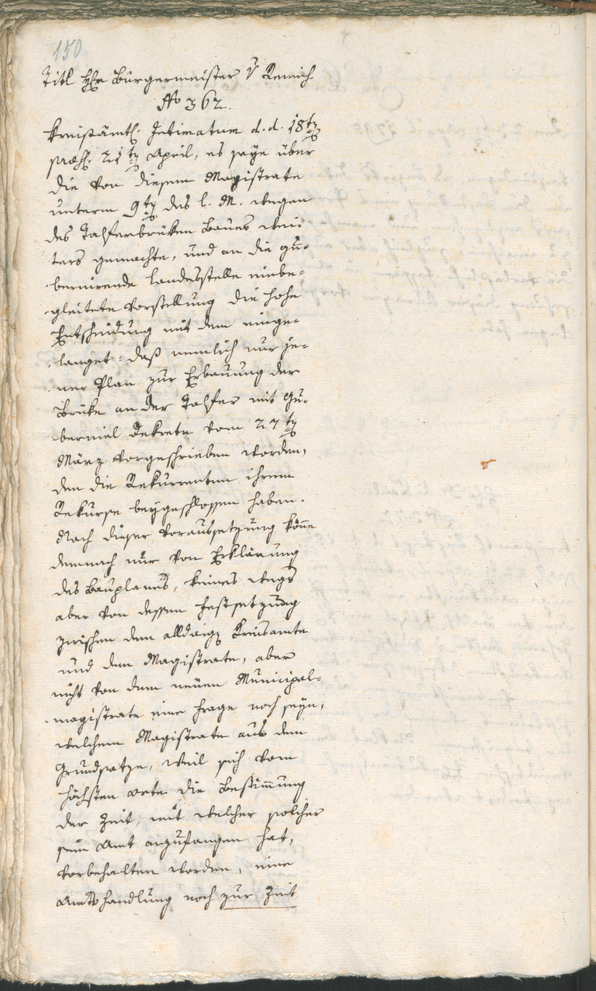 150.
Titl Hr Bürgermeister v Remich
No 362.
Kreisämtl. Intimatum d. d. 18ten
praes. 21ten April, es seye über
die von diesem Magistrate
unterm 9ten des l. M. wegen
des Talferbrüken Baues wei-
ters gemachte, und an die gu-
bernirende Landesstelle einbe-
gleitete Vorstellung die hohe
Entscheidung mit dem einge-
langet: daß nemlich nur je-
ner Plan zur Erbauung der
Brüke an der Talfer mit Gu-
bernial Dekrete vom 27ten
März vorgeschrieben worden,
den die Rekurrenten ihrem
Rekurse beygeschlossen haben.
Nach dieser Voraussetzung könne
demnach nur von Erklärung
des Bauplanes, keines wegs
aber von dessen Festsetzung
zwischen dem alldasig Kreisamte
und dem Magistrate, aber
nicht von dem neüen Municipal-
magistrate eine Frage noch seyn,
welchem Magistrate aus dem
Grundsatze, weil sich vom
höchsten orte die Bestimmung
der Zeit, mit welcher solcher
sein Amt anzufangen hat,
vorbehalten worden, eine
Amtshandlung noch zur Zeit